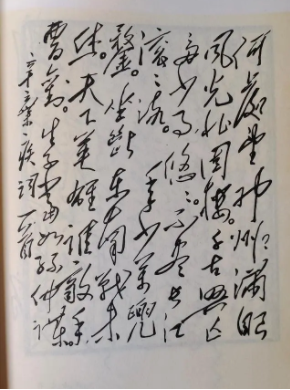 何处望神州?满眼
风光北固楼。千古兴亡
多少事,悠悠。不尽长江
滚滚流。年少万兜
鍪。坐断东南战未
休。天下英雄谁敌手
曹刘。生子当如孙仲谋。
疾词一首